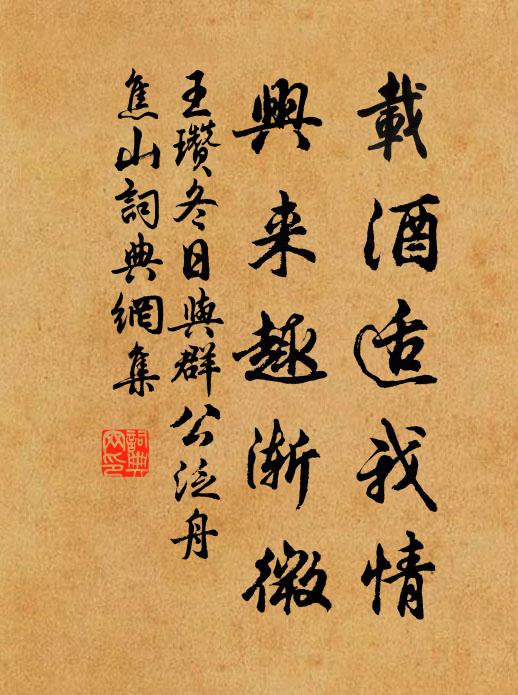 載酒适我情
興来趣漸微
王瓚冬日與群公泛舟
焦山詞典網集
詞典网印